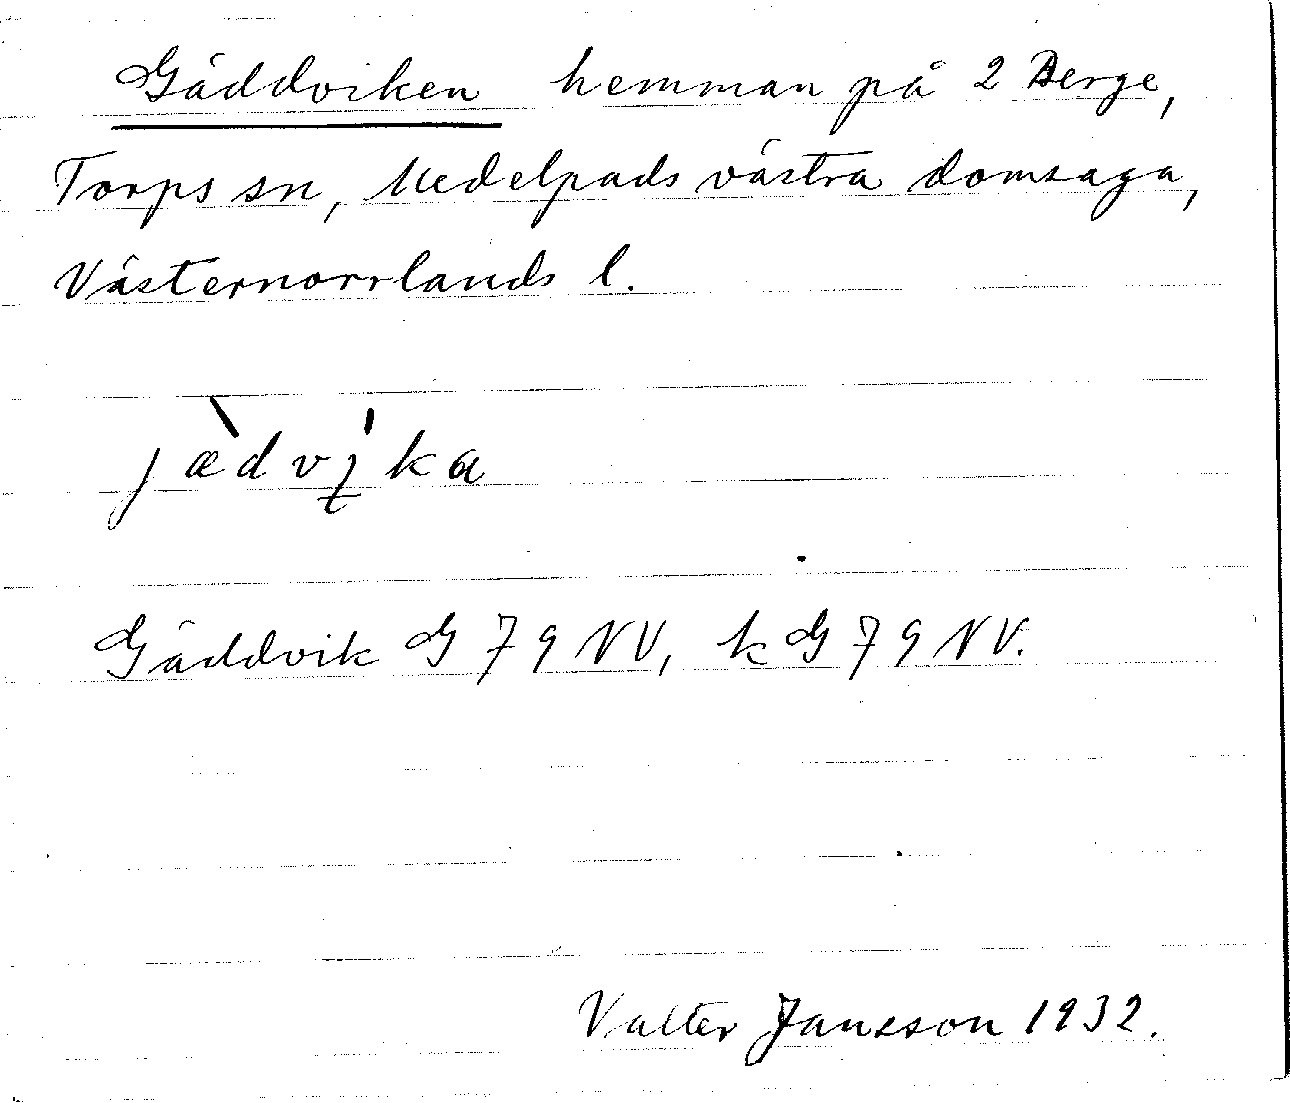 Gäddviken hemman på 2 Berge,
Torps sn, Medelpads västra domsaga,
Västernorrlands l.
jæ̀dvi̱̍ka
Gäddvik G 79 NV, kG 79 NV.
Valter Jansson 1932.